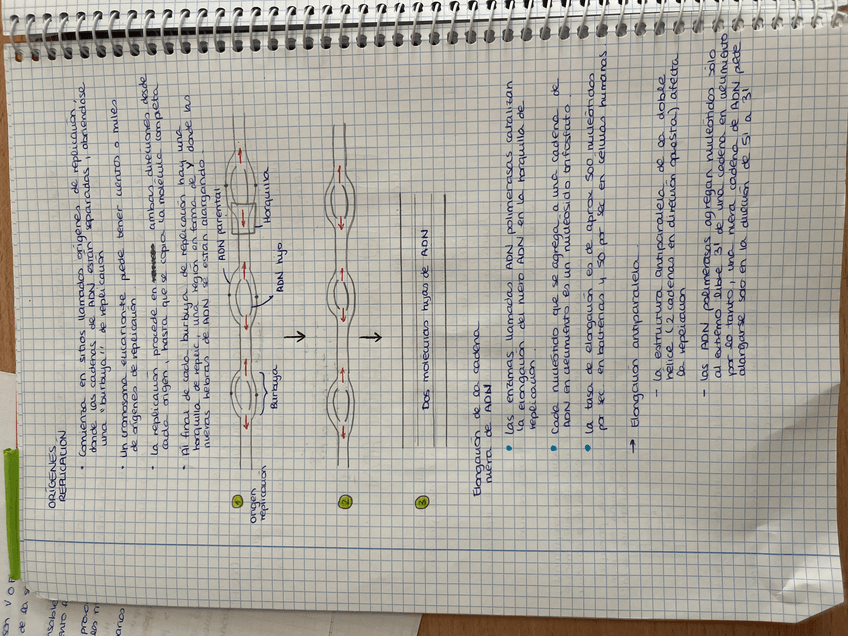 ORÍGENES
REPLICACIÓN
• Comienza en sitios llamados orígenes de replicación,
donde las cadenas de ADN están separadas, abriéndose
una "burbuja" de replicación
• Un cromosoma eucarionte puede tener cientos o miles
de orígenes de replicación
• La replicación procede en ambas direcciones desde
cada origen, hasta que se copia la molécula completa
• Al final de cada burbuja de replicación hay una
horquilla de replic, una región en forma de Y donde las
nuevas hebras de ADN se están alargando.
1
origen
replicación
Burbuja
ADN parental
ADN hijo
Horquilla
2
3
Dos moléculas hijas de ADN
Elongación de la cadena
nueva de ADN
• Las enzimas llamadas ADN polimerasas catalizan
la elongación del nuevo ADN en la horquilla de
replicación
• Cada nucleótido que se agrega a una cadena de
ADN en crecimiento es un nucleósido trifosfato.
• La tasa de elongación es de aprox 500 nucleótidos
por sec en bacterias y 50 por sec en células humanas
→ Elongación antiparalela
- La estructura antiparalela de la doble
hélice (2 cadenas en dirección opuesta) afecta
la replicación
- Las ADN polimerasas agregan nucleótidos solo
al extremo libre 3' de una cadena en crecimiento
por lo tanto, una nueva cadena de ADN puede
alargarse solo en la dirección de 5' a 3'